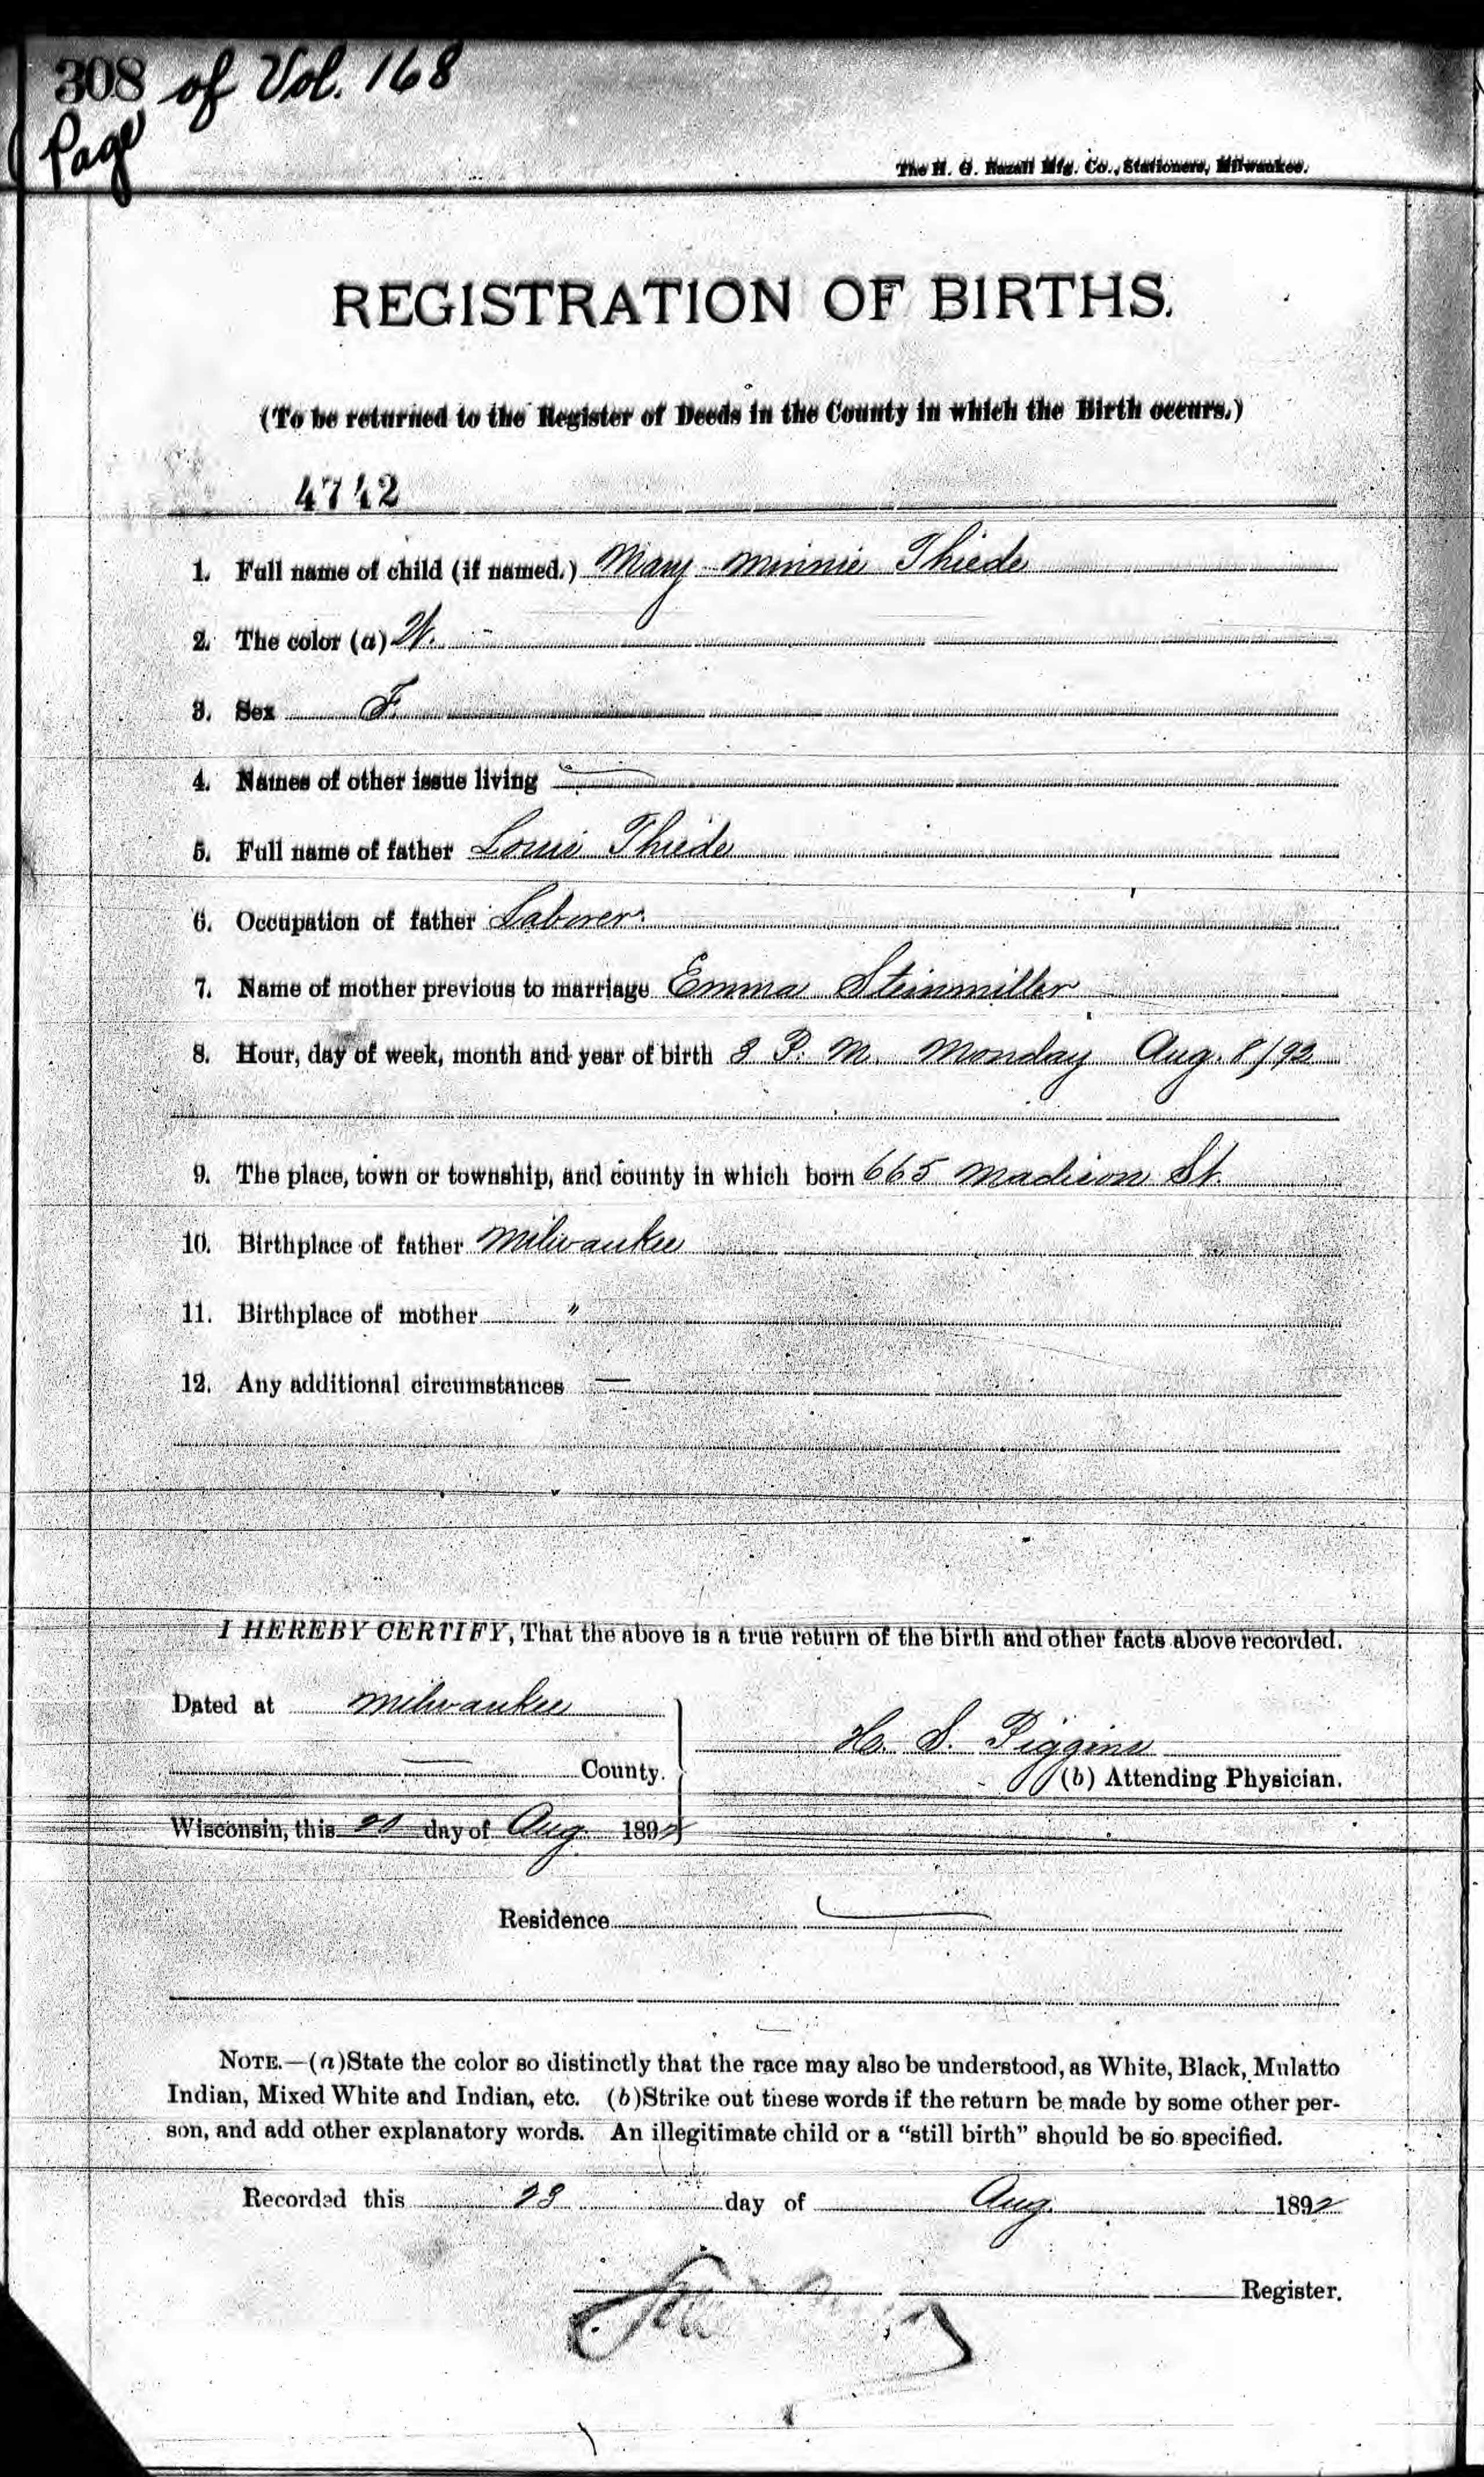 308 of Vol. 168
Page
The H. G. Razall Mfg. Co., Stationers, Milwaukee.
REGISTRATION OF BIRTHS.
(To be returned to the Register of Deeds in the County in which the Birth occurs.)
4742
1. Full name of child (if named.) Mary Minnie Thiede
2. The color (a) W.
3. Sex F.
4. Names of other issue living —
5. Full name of father Louis Thiede
6. Occupation of father Laborer.
7. Name of mother previous to marriage Emma Steinmiller
8. Hour, day of week, month and year of birth 8 P. M. Monday Aug. 8/92
9. The place, town or township, and county in which born 665 Madison St.
10. Birthplace of father Milwaukee
11. Birthplace of mother "
12. Any additional circumstances —
I HEREBY CERTIFY, That the above is a true return of the birth and other facts above recorded.
Dated at Milwaukee
H. S. Piggins
— County.
(b) Attending Physician.
Wisconsin, this 20 day of Aug. 1892
Residence —
NOTE.—(a) State the color so distinctly that the race may also be understood, as White, Black, Mulatto
Indian, Mixed White and Indian, etc. (b) Strike out these words if the return be made by some other per-
son, and add other explanatory words. An illegitimate child or a "still birth" should be so specified.
Recorded this 23 day of Aug. 1892
Register.